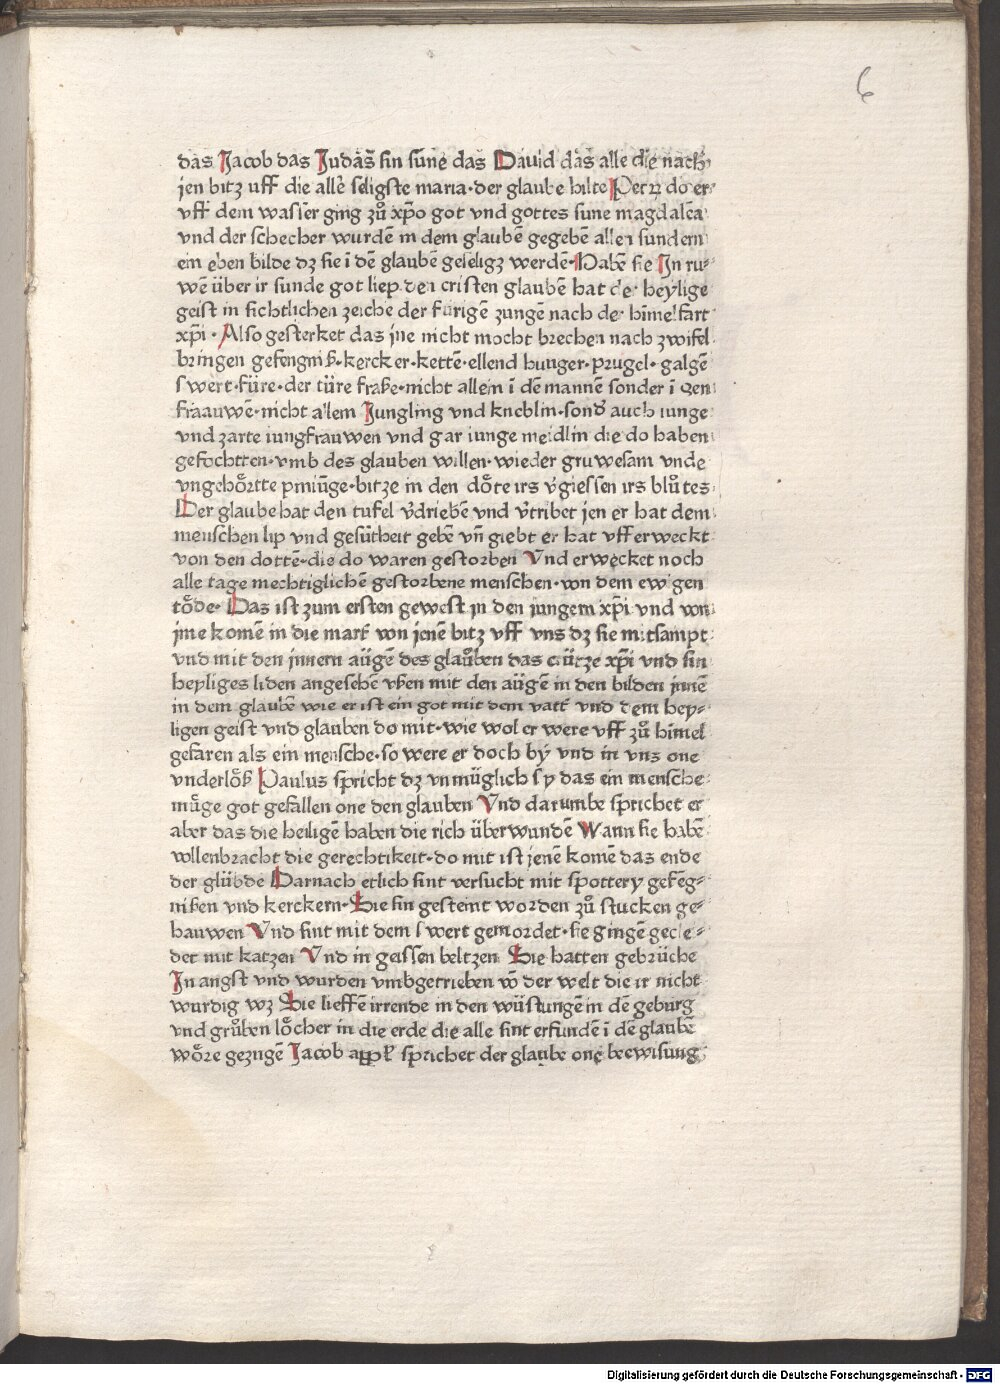 6
das Jacob das Judas̃ sin sune das Dauid das alle die nach
jen bitz uff die alle seligste maria·der glaube hilte Petrꝝ do er
uff dem wasser ging zů xp̃o got vnd gottes sune magdalẽa
vnd der schecher wurdẽ in dem glaubẽ gegebẽ allen sundern
ein eben bilde dz sie ĩ dẽ glaubẽ geseligz werdẽ·Habẽ sie In ru⸗
wẽ über ir sunde got liep den cristen glaubẽ hat de heylige
geist in sichtlichen zeiche der fürigẽ zungẽ nach de hĩmelfart
xp̃i·Also gesterket das jne nicht mocht brechen nach zwifel
bringen gefengniß·kercker·kettẽ·ellend hunger·prugel·galgẽ
swert·füre·der türe fraße·nicht allein ĩ dẽ mannẽ sonder ĩ den
fraauwẽ·nicht allem Jungling vnd kneblin·sonđ auch iunge
vnd zarte iungfrauwen vnd gar iunge meidlin die do haben
gefochtten·vmb des glauben willen·wieder gruwesam vnde
vngehoͤrtte pmiũge·bitze in den doͤte irs v̄giessen irs blůtes
Der glaube hat den tufel v̄driebẽ vnd v̄tribet jen er hat dem
menschen lip vnd gesũtheit gebẽ vñ giebt er hat uff erweckt
von den dottẽ·die do waren gestorben Vnd erwecket noch
alle tage mechtiglichẽ gestorbene menschen·von dem ewigen
toͤde·Das ist zum ersten gewest jn den jungern xp̃i vnd von
jme komẽ in die mart̃ von jenẽ bitz uff vns dz sie mitsampt
vnd mit den jnnern aügẽ des glaůben das crütze xp̃i vnd sin
heyliges liden angesehẽ vßen mit den aügẽ in den bilden jnnẽ
in dem glaubẽ wie er ist ein got mit dem vatt̃ vnd dem hey⸗
ligen geist vnd glauben do mit·wie wol er were uff zů himel
gefaren als ein mensche·so were er doch by vnd in vnz one
vnderloͤß Paulus spricht dz vnmüglich sy das ein mensche
maͤge got gefallen one den glauben Vnd darumbe sprichet er
aber das die heiligẽ haben die rich überwundẽ Wann sie habẽ
vollenbracht die gerechtikeit·do mit ist jenẽ komẽ das ende
der glübde Darnach etlich sint versucht mit spottery gefẽg⸗
nißen vnd kerckern·Sie sin gesteint worden zů stucken ge⸗
hauwen Vnd sint mit dem swert gemordet·sie gingẽ gecle⸗
det mit katzen Vnd in geissen beltzen Sie hatten gebrüche
In angst vnd wurden vmbgetrieben võ der welt die ir nicht
wurdig wz Sie lieffẽ irrende in den wüstungẽ in dẽ geburg
vnd grůben loͤcher in die erde die alle sint erfundẽ ĩ dẽ glaubẽ
woͤre gezugẽ Jacob appl̃ sprichet der glaube one beewisung
Digitalisierung gefördert durch die Deutsche Forschungsgemeinschaft - DFG